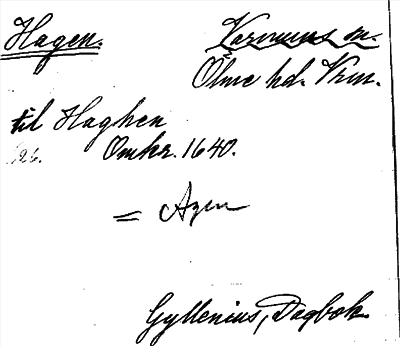 Hagen. Varnums sn.
Ölme hd. Vrm.
til Haghen
126. Omkr. 1640.
= Agen
Gyllenius, Dagbok.